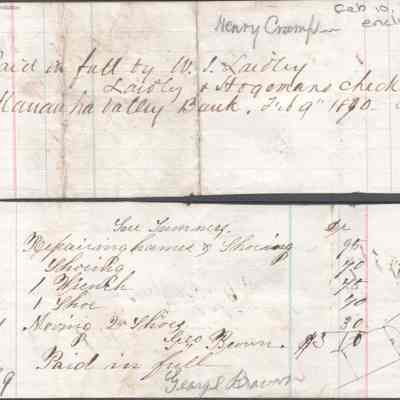 Cab 10,
Henry Crump
encl
Paid in full by W. S. Laidley
Laidley & Hogemans check
Kanawha Valley Bank. Feb 9" 1890.
Dr
Repairing hames & Shoing 90
Shoeing 70
1 Wrench 75
1 Shoe 40
Moving 2 Shoes 30
Geo Brown. $3
Paid in full
George Brown
9